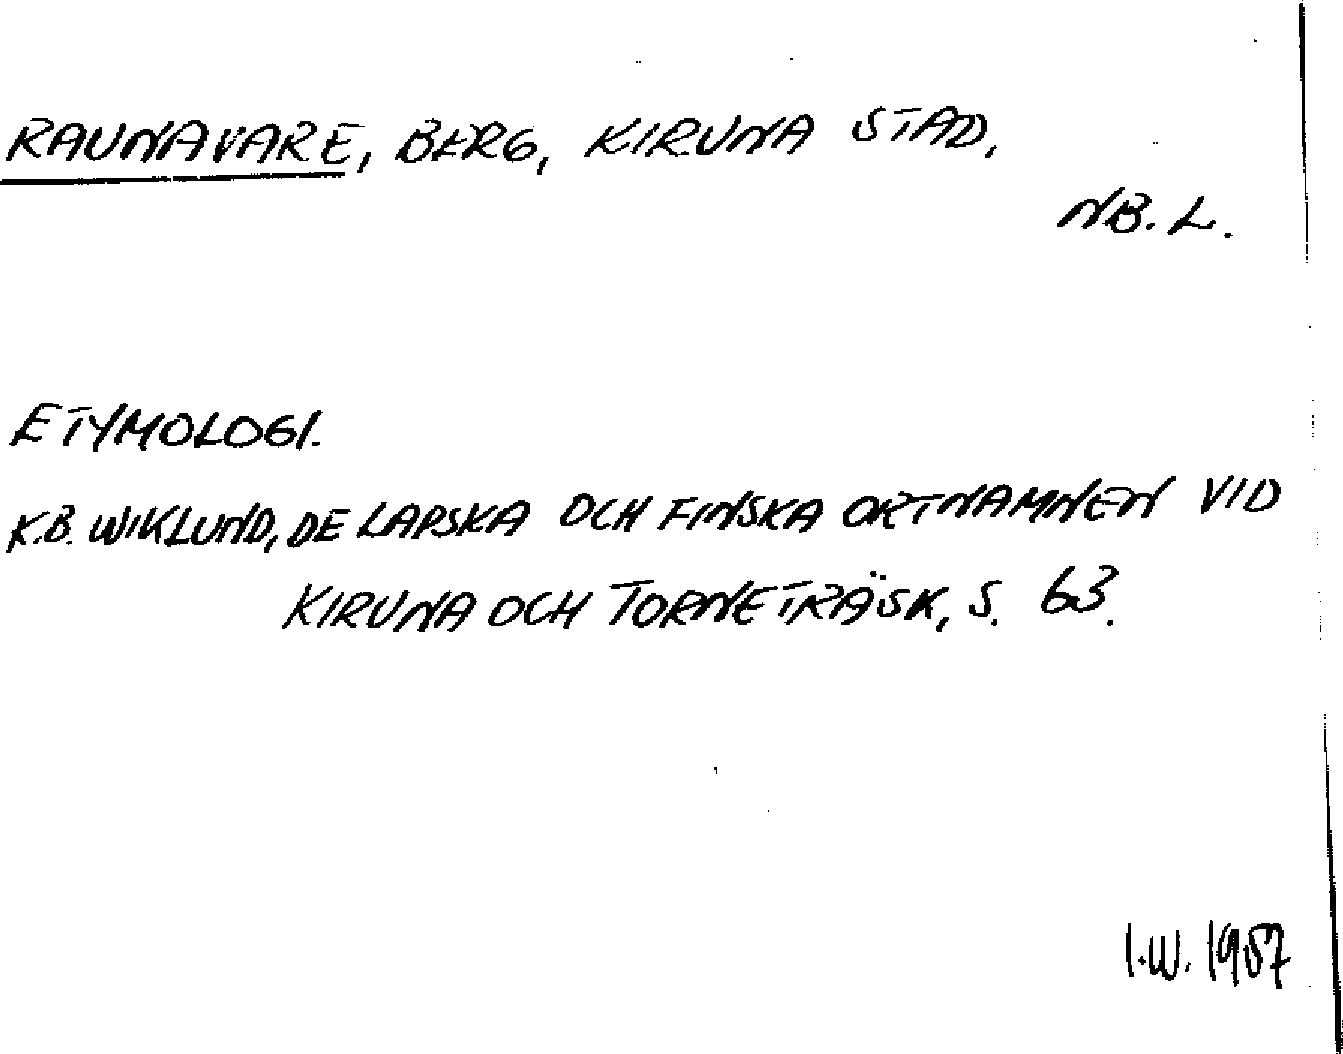 RAUNAVARE, BERG, KIRUNA STAD,
NB. L.
ETYMOLOGI.
K.B. WIKLUND, DE LAPSKA OCH FINSKA ORTNAMNEN VID
KIRUNA OCH TORNETRÄSK, S. 63.
I.W. 1957